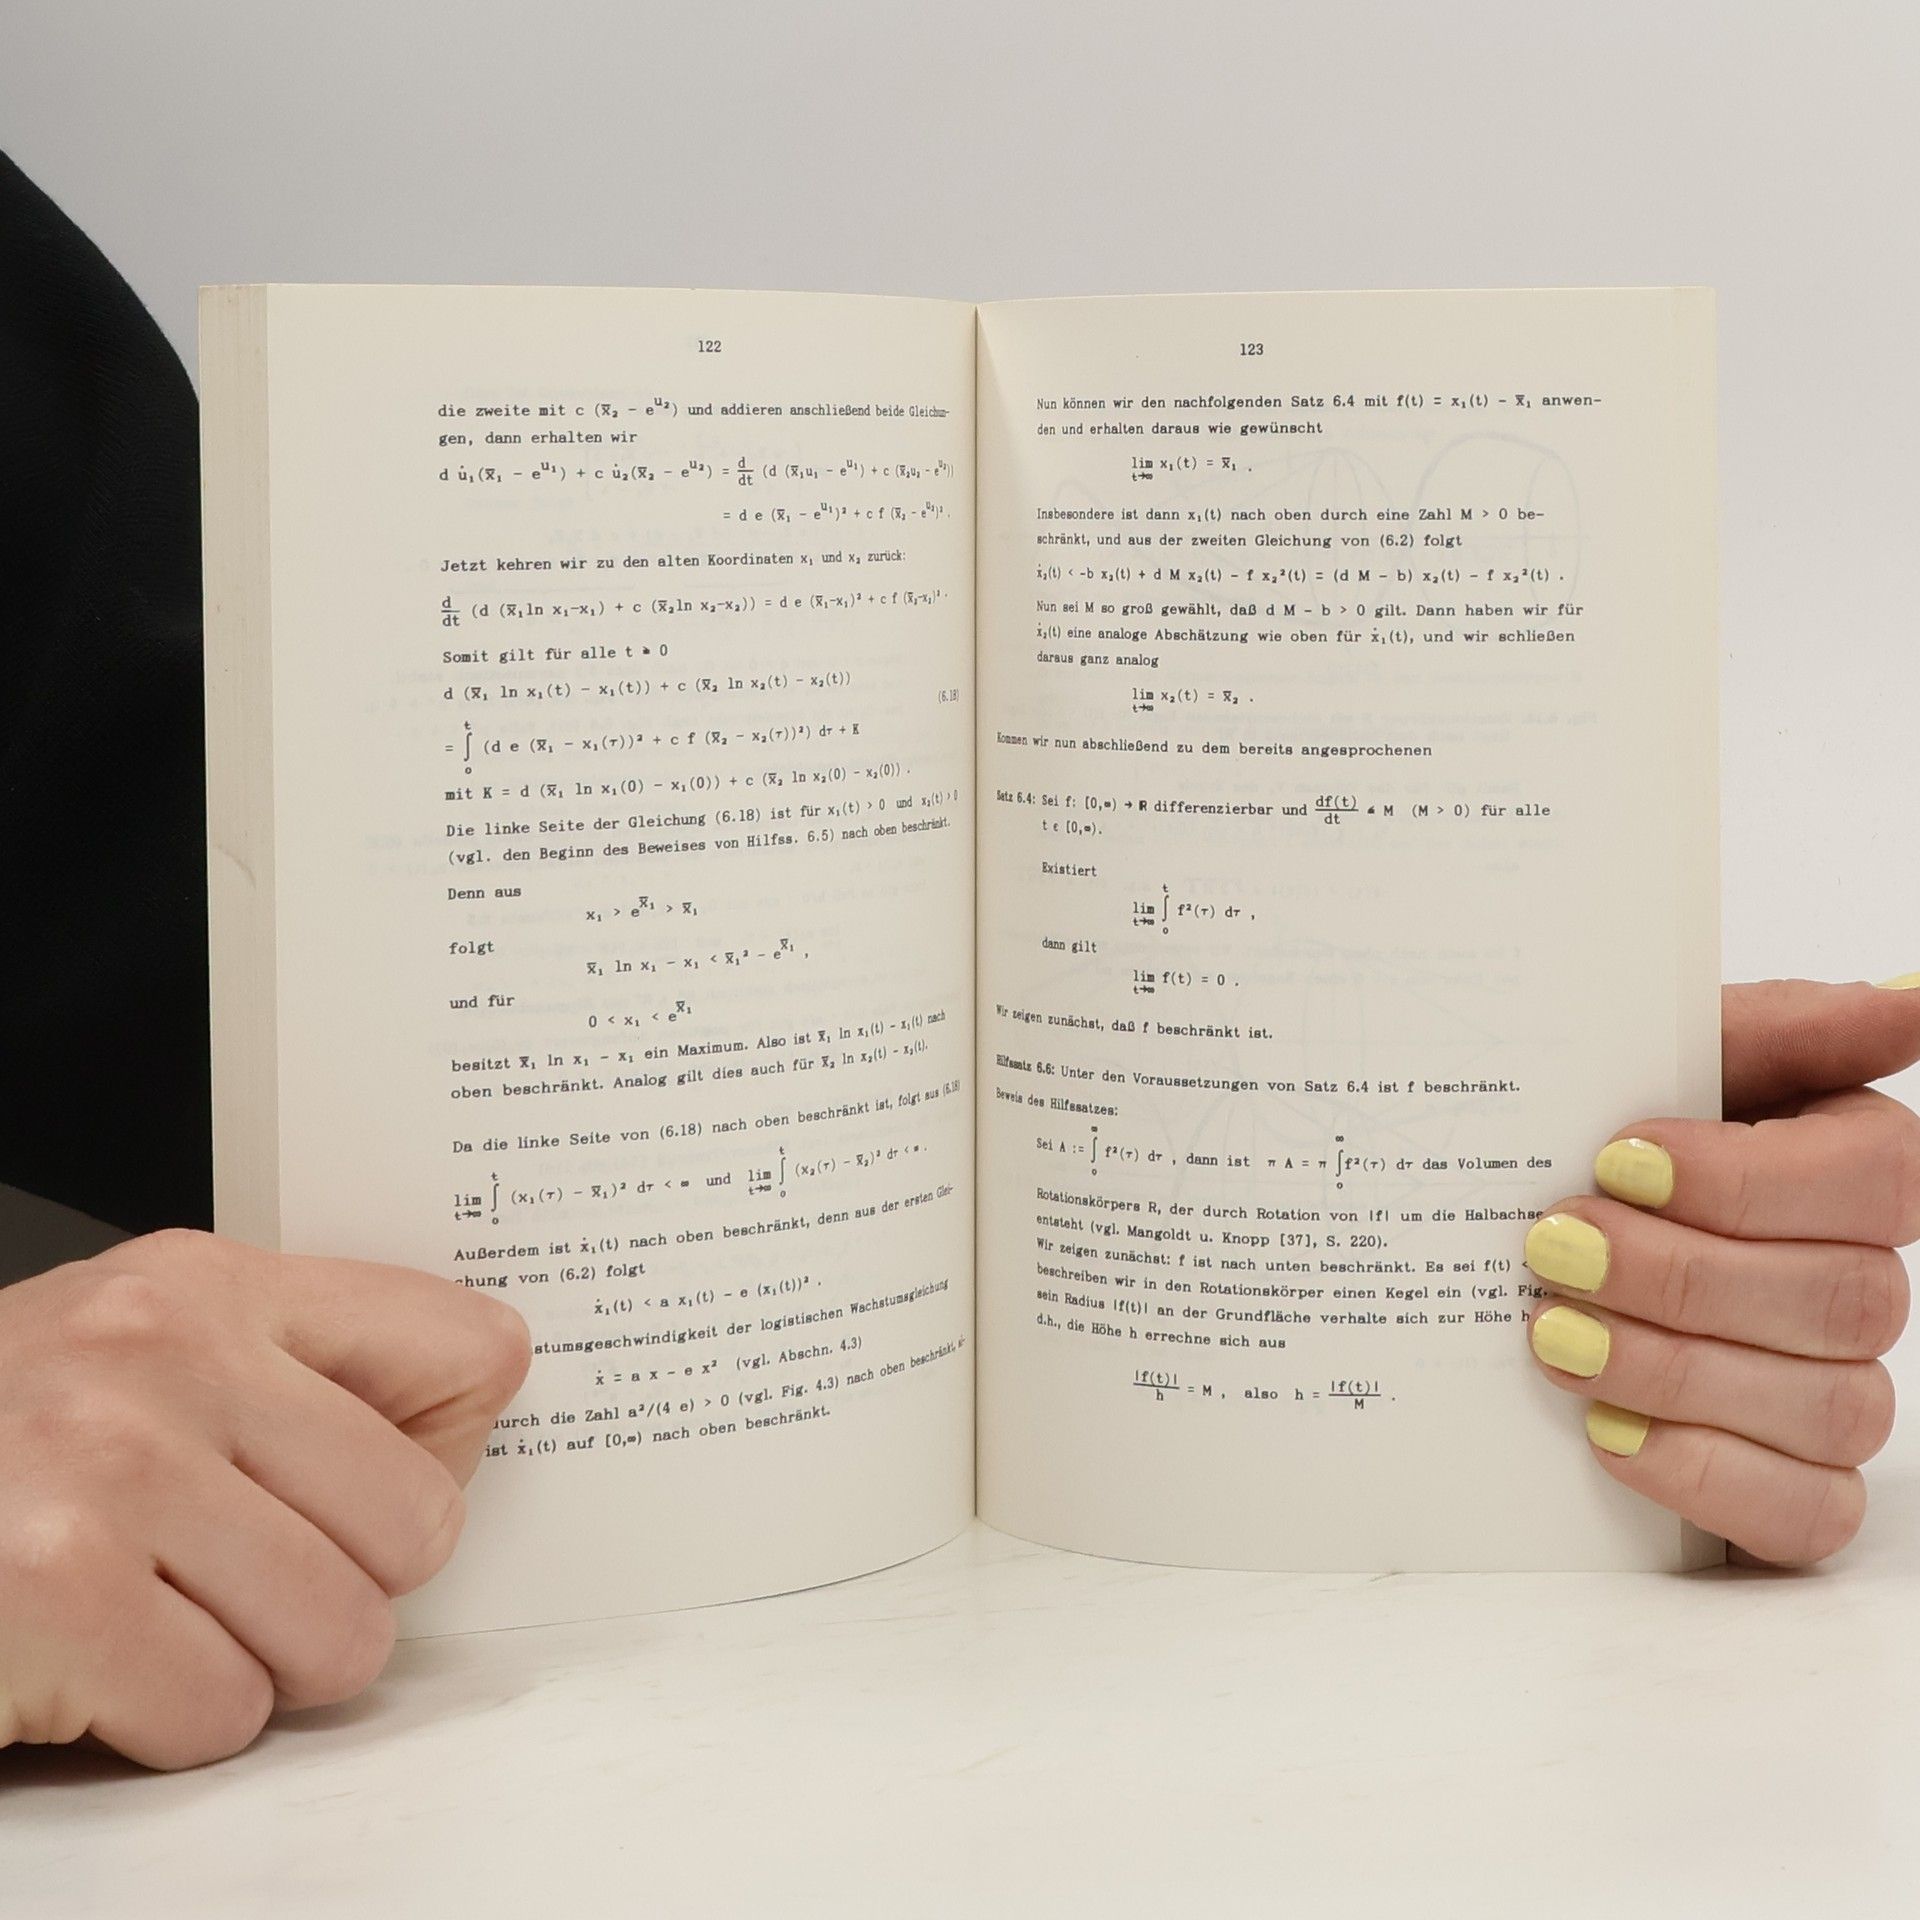 122
die zweite mit c (x̄₂ − e^u₂) und addieren anschließend beide Gleichun-
gen, dann erhalten wir
d u̇₁(x̄₁ − e^u₁) + c u̇₂(x̄₂ − e^u₂) = d/dt (d (x̄₁u₁ − e^u₁) + c (x̄₂u₂ − e^u₂))
= d e (x̄₁ − e^u₁)² + c f (x̄₂ − e^u₂)² .
Jetzt kehren wir zu den alten Koordinaten x₁ und x₂ zurück:
d/dt (d (x̄₁ln x₁−x₁) + c (x̄₂ln x₂−x₂)) = d e (x̄₁−x₁)² + c f (x̄₂−x₂)² .
Somit gilt für alle t ≥ 0
d (x̄₁ ln x₁(t) − x₁(t)) + c (x̄₂ ln x₂(t) − x₂(t))
(6.18)
= ∫₀^t (d e (x̄₁ − x₁(τ))² + c f (x̄₂ − x₂(τ))²) dτ + K
mit K = d (x̄₁ ln x₁(0) − x₁(0)) + c (x̄₂ ln x₂(0) − x₂(0)) .
Die linke Seite der Gleichung (6.18) ist für x₁(t) > 0 und x₂(t) > 0
(vgl. den Beginn des Beweises von Hilfss. 6.5) nach oben beschränkt.
Denn aus
x₁ > e^x̄₁ > x̄₁
folgt
x̄₁ ln x₁ − x₁ < x̄₁² − e^x̄₁ ,
und für
0 < x₁ < e^x̄₁
besitzt x̄₁ ln x₁ − x₁ ein Maximum. Also ist x̄₁ ln x₁(t) − x₁(t) nach
oben beschränkt. Analog gilt dies auch für x̄₂ ln x₂(t) − x₂(t).
Da die linke Seite von (6.18) nach oben beschränkt ist, folgt aus (6.18)
lim t→∞ ∫₀^t (x₁(τ) − x̄₁)² dτ < ∞ und lim t→∞ ∫₀^t (x₂(τ) − x̄₂)² dτ < ∞ .
Außerdem ist ẋ₁(t) nach oben beschränkt, denn aus der ersten Glei-
chung von (6.2) folgt
ẋ₁(t) < a x₁(t) − e (x₁(t))² .
stumsgeschwindigkeit der logistischen Wachstumsgleichung
ẋ = a x − e x² (vgl. Abschn. 4.3)
durch die Zahl a²/(4 e) > 0 (vgl. Fig. 4.3) nach oben beschränkt,
ist ẋ₁(t) auf [0,∞) nach oben beschränkt.
123
Nun können wir den nachfolgenden Satz 6.4 mit f(t) = x₁(t) − x̄₁ anwen-
den und erhalten daraus wie gewünscht
lim t→∞ x₁(t) = x̄₁ .
Insbesondere ist dann x₁(t) nach oben durch eine Zahl M > 0 be-
schränkt, und aus der zweiten Gleichung von (6.2) folgt
ẋ₂(t) < -b x₂(t) + d M x₂(t) − f x₂²(t) = (d M − b) x₂(t) − f x₂²(t) .
Nun sei M so groß gewählt, daß d M − b > 0 gilt. Dann haben wir für
ẋ₂(t) eine analoge Abschätzung wie oben für ẋ₁(t), und wir schließen
daraus ganz analog
lim t→∞ x₂(t) = x̄₂ .
Kommen wir nun abschließend zu dem bereits angesprochenen
Satz 6.4: Sei f: [0,∞) → ℝ differenzierbar und df(t)/dt ≤ M (M > 0) für alle
t ϵ [0,∞).
Existiert
lim t→∞ ∫₀^t f²(τ) dτ ,
dann gilt
lim t→∞ f(t) = 0 .
Wir zeigen zunächst, daß f beschränkt ist.
Hilfssatz 6.6: Unter den Voraussetzungen von Satz 6.4 ist f beschränkt.
Beweis des Hilfssatzes:
Sei A := ∫₀^∞ f²(τ) dτ , dann ist π A = π ∫₀^∞ f²(τ) dτ das Volumen des
Rotationskörpers R, der durch Rotation von |f| um die Halbachse
entsteht (vgl. Mangoldt u. Knopp [37], S. 220).
Wir zeigen zunächst: f ist nach unten beschränkt. Es sei f(t) <
beschreiben wir in den Rotationskörper einen Kegel ein (vgl. Fig.
sein Radius |f(t)| an der Grundfläche verhalte sich zur Höhe h
d.h., die Höhe h errechne sich aus
|f(t)|/h = M , also h = |f(t)|/M .